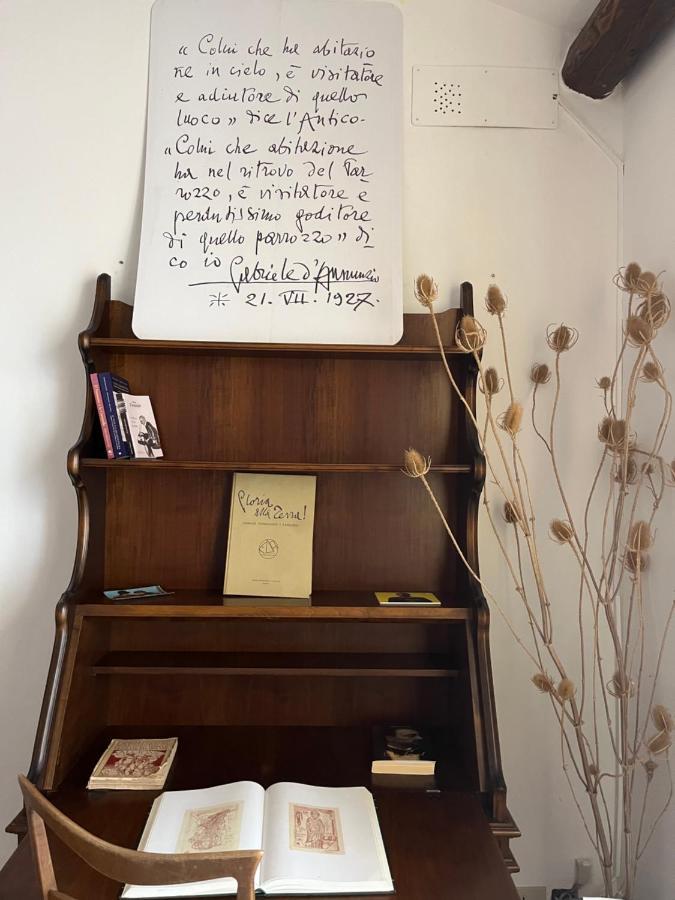 « Colui che ha abitazio
ne in cielo, è visitatore
e adiutore di quello
luoco » dice l'Antico-
« Colui che abitazione
ha nel ritrovo del Par
rozzo, è visitatore e
perdutissimo goditore
di quello parrozzo » di
co io Gabriele d'Annunzio
21. VII. 1927.
Gloria
alla Terra!